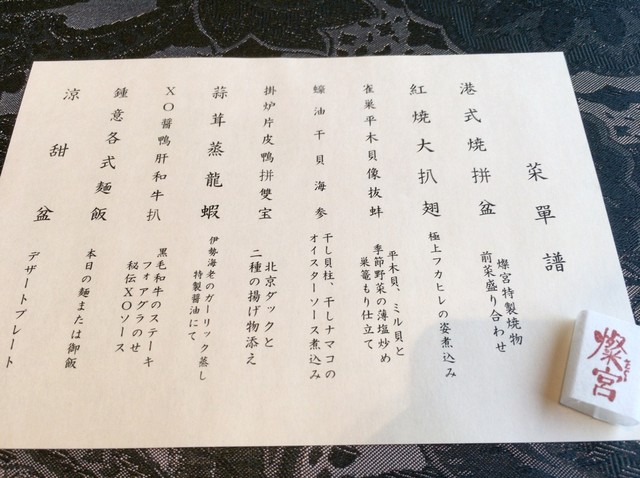 菜單譜
港式燒拼盆
燦宮特製焼物
前菜盛り合わせ
紅燒大扒翅
極上フカヒレの姿煮込み
雀巣平木貝像抜蚌
平木貝、ミル貝と
季節野菜の薄塩炒め
巣篭もり仕立て
蠔油干貝海参
干し貝柱、干しナマコの
オイスターソース煮込み
掛炉片皮鴨拼雙宝
北京ダックと
二種の揚げ物添え
蒜茸蒸龍蝦
伊勢海老のガーリック蒸し
特製醤油にて
XO醬鴨肝和牛扒
黒毛和牛のステーキ
フォアグラのせ
秘伝XOソース
鍾意各式麵飯
本日の麺または御飯
涼甜盆
デザートプレート
燦宮